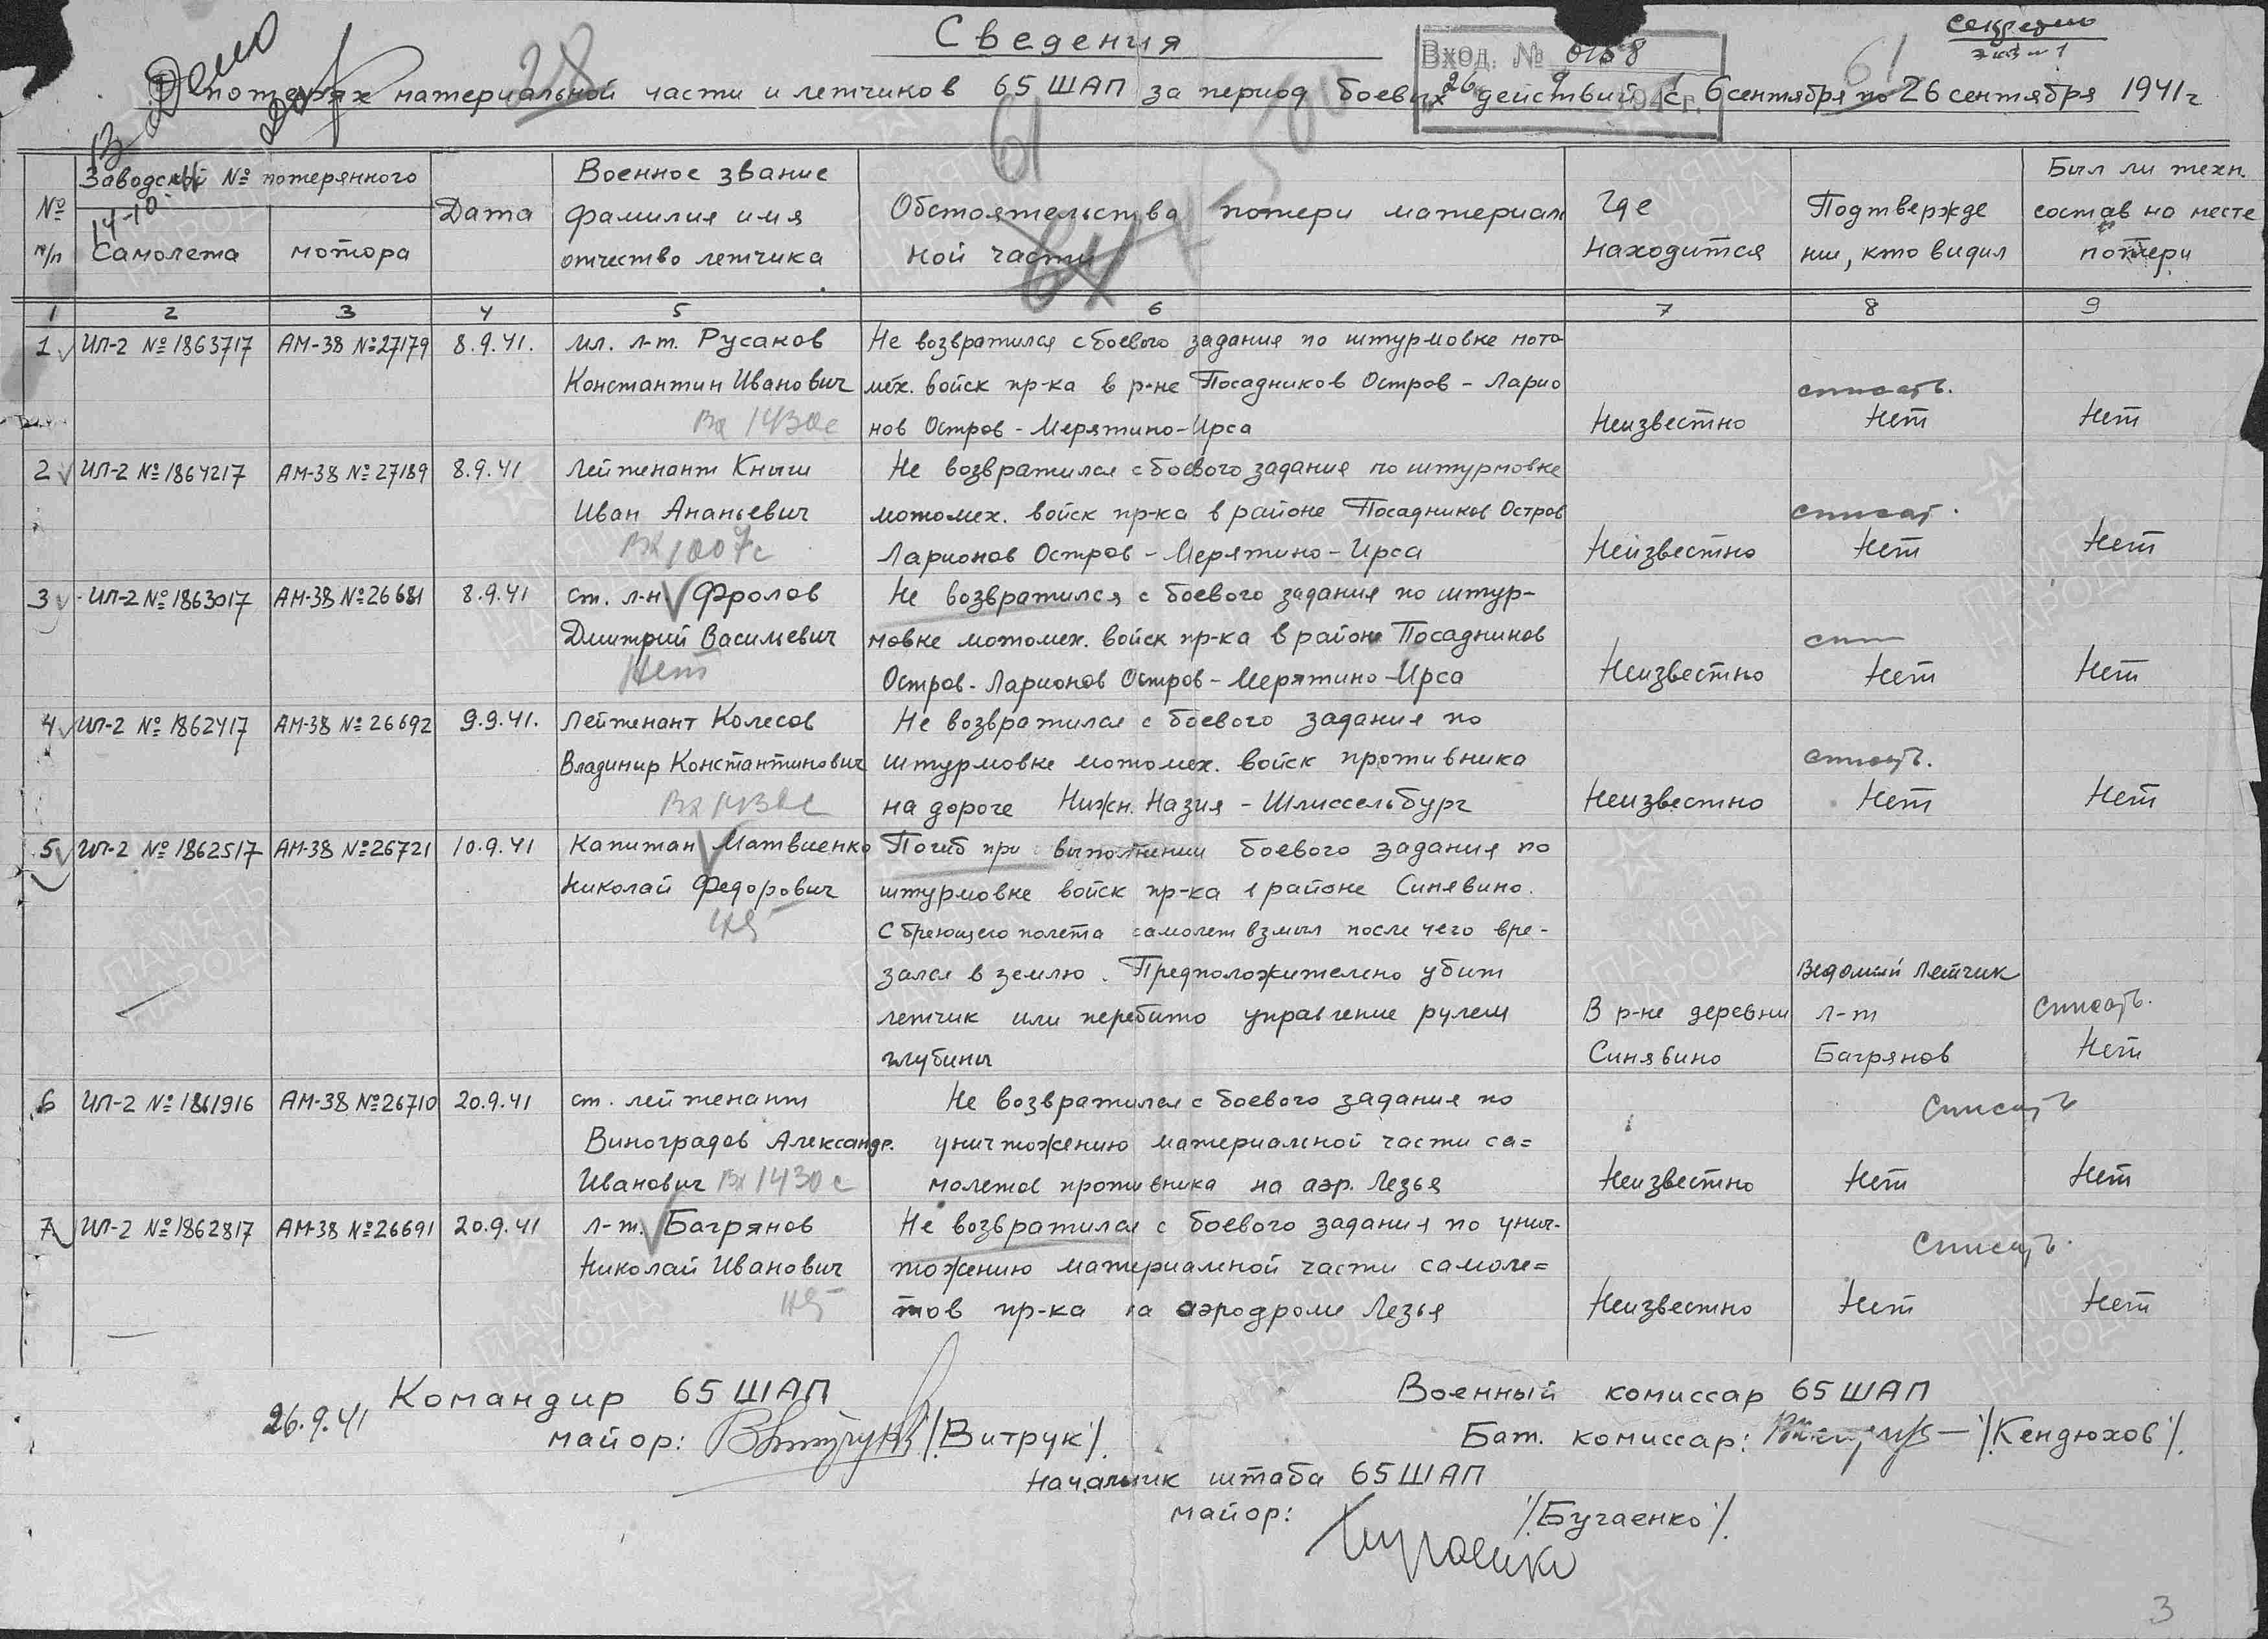 Сведения
Секретно
экз № 1
Вход. № 0158
о потерях материальной части и летчиков 65 ШАП за период боевых действий с 6 сентября по 26 сентября 1941 г
В Дело
28
61
61
64
14-10-41
№ п/п
Заводской № потерянного
Самолета
мотора
Дата
Военное звание
фамилия имя
отчество летчика
Обстоятельства потери материаль
ной части
Где
находится
Подтвержде
ния, кто видил
Был ли техн.
состав на месте
потери
1 2 3 4 5 6 7 8 9
1 ИЛ-2 № 1863717 АМ-38 № 27179 8.9.41. мл. л-т. Русаков Не возвратился с боевого задания по штурмовке мото
Константин Иванович мех. войск пр-ка в р-не Посадников Остров - Ларио списать.
Вх 1430с нов Остров - Мерятино-Ирса Неизвестно Нет Нет
2 ИЛ-2 № 1864217 АМ-38 № 27189 8.9.41 Лейтенант Кныш Не возвратился с боевого задания по штурмовке
Иван Ананьевич мотомех. войск пр-ка в районе Посадников Остров списат.
Вх 1007с Ларионов Остров - Мерятино - Ирса Неизвестно Нет Нет
3 ИЛ-2 № 1863017 АМ-38 № 26681 8.9.41 ст. л-н Фролов Не возвратился с боевого задания по штур-
Дмитрий Васильевич мовке мотомех. войск пр-ка в районе Посадников
Нет Остров - Ларионов Остров - Мерятино - Ирса Неизвестно Нет Нет
4 ИЛ-2 № 1862417 АМ-38 № 26692 9.9.41. Лейтенант Колесов Не возвратился с боевого задания по
Владимир Константинович штурмовке мотомех. войск противника списать.
Вх 1430с на дороге Нижн. Назия - Шлиссельбург Неизвестно Нет Нет
5 ИЛ-2 № 1862517 АМ-38 № 26721 10.9.41 Капитан Матвиенко Погиб при выполнении боевого задания по
Николай Федорович штурмовке войск пр-ка в районе Синявино.
С бреющего полета самолет взмыл после чего вре-
зался в землю. Предположительно убит Ведомый летчик
летчик или перебито управление рулем В р-не деревни л-т Списать.
глубины Синявино Багрянов Нет
6 ИЛ-2 № 1861916 АМ-38 № 26710 20.9.41 ст. лейтенант Не возвратился с боевого задания по Списать
Виноградов Александр. уничтожению материальной части са=
Иванович Вх 1430с молетов противника на аэр. Лезья Неизвестно Нет Нет
7 ИЛ-2 № 1862817 АМ-38 № 26691 20.9.41 л-т. Багрянов Не возвратился с боевого задания по унич- Списать.
Николай Иванович тожению материальной части самоле=
тов пр-ка на аэродроме Лезья Неизвестно Нет Нет
Командир 65 ШАП
26.9.41
майор: /Витрук/.
Военный комиссар 65 ШАП
Бат. комиссар: /Кендюхов/.
Начальник штаба 65 ШАП
майор: /Бугаенко/.
3
ПАМЯТЬ НАРОДА